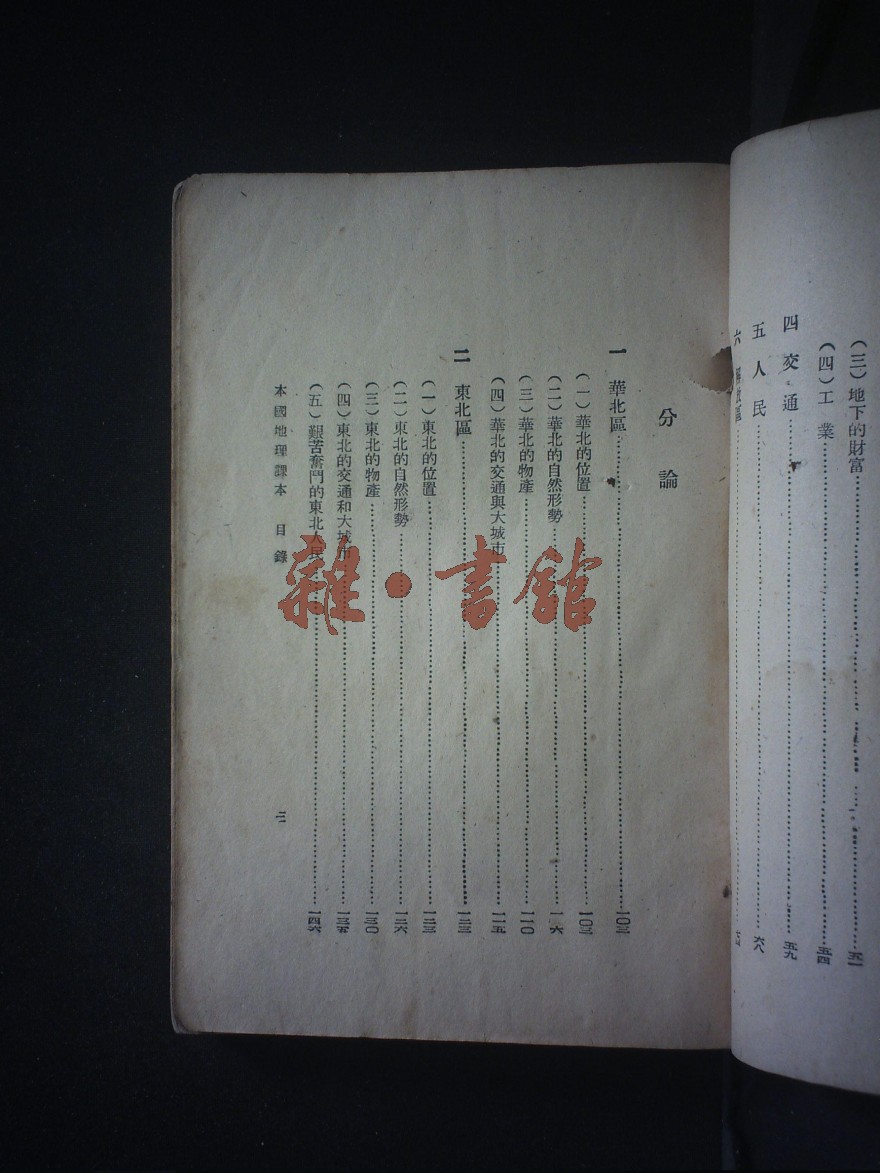 (三)地下的財富……五一
(四)工業……五四
四 交通……五九
五 人民……六八
六 解放區……
分論
一 華北區……一〇三
(一)華北的位置……一〇三
(二)華北的自然形勢……一〇六
(三)華北的物產……一一〇
(四)華北的交通與大城市……一一五
二 東北區……一二三
(一)東北的位置……一二三
(二)東北的自然形勢……一二六
(三)東北的物產……一三〇
(四)東北的交通和大城市……一三五
(五)艱苦奮鬥的東北人民……一四六
本國地理課本 目錄 三
雜·書館